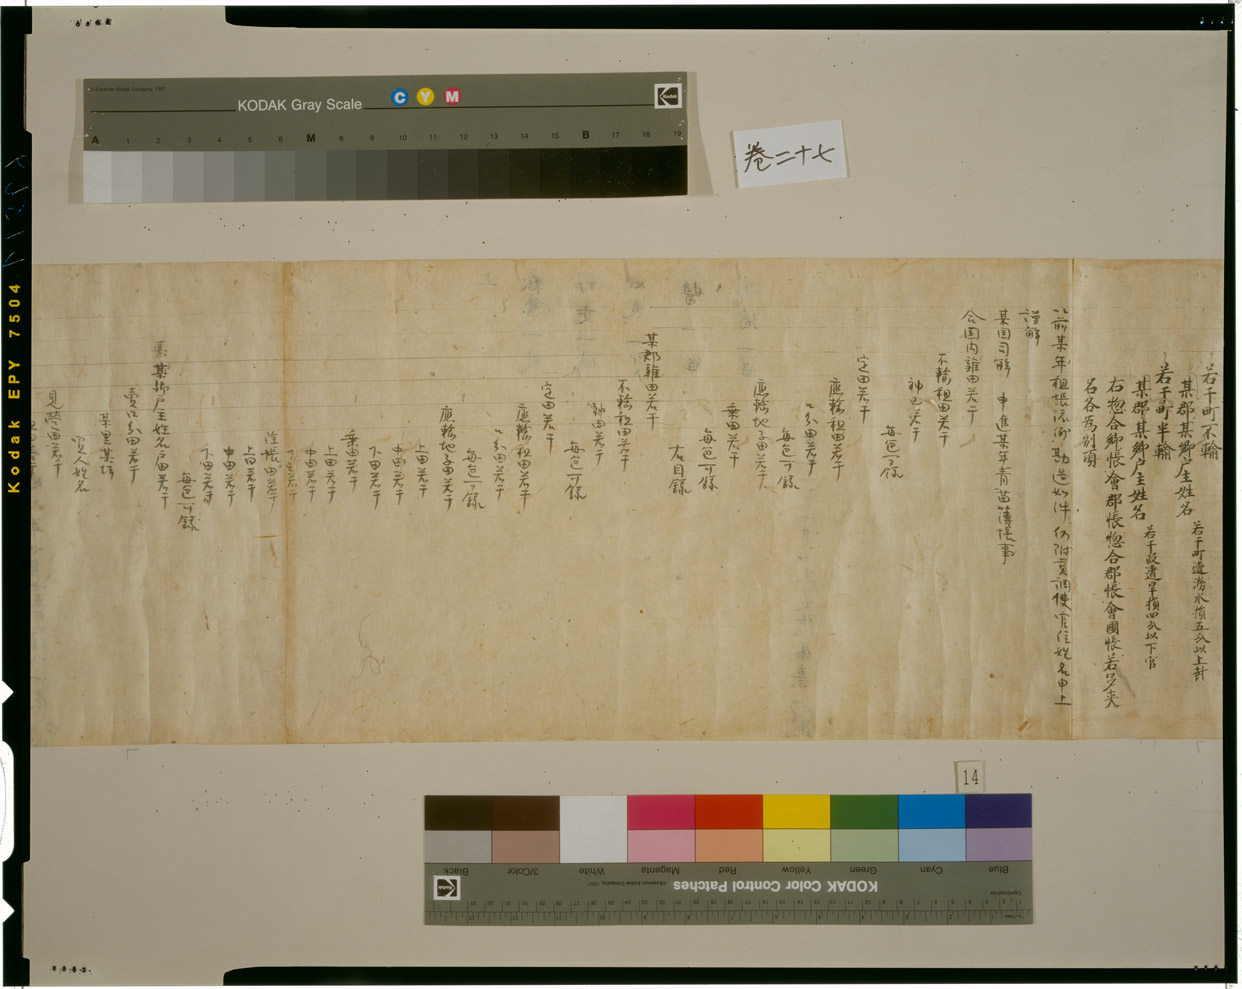 © Eastman Kodak Company, 1997
KODAK Gray Scale
C Y M
Kodak
A 1 2 3 4 5 6 M 8 9 10 11 12 13 14 15 B 17 18 19
卷二十七
Kodak EPY 7504
若干町不輸
某郡某郷戸主姓名 若干町遭澇水損五分以上封
若干町半輸
某郡某郷戸主姓名 若干段遭旱損四分以下官
右惣合郷帳會郡帳惣合郡帳會國帳若多夾
名各為別項
以前某年租帳依例勘造如件仍附貢調使官位姓名申上
謹解
某国司解 申進某年青苗簿帳事
合国内雜田若干
不輸租田若干
神田若干
毎色可録
定田若干
應輸租田若干
口分田若干
毎色可録
應輸地子田若干
乗田若干
毎色可録
右目録
某郡雜田若干
不輸租田若干
神田若干
毎色可録
定田若干
應輸租田若干
口分田若干
毎色可録
應輸地子田若干
上田若干
中田若干
下田若干
乗田若干
上田若干
中田若干
下田若干
上田若干
中田若干
下田若干
毎色可録
某郷戸主姓名田若干
賣口分田若干
某里某坪
買人姓名
見營田若干
14
Black 3/Color White Magenta Red Yellow Green Cyan Blue
KODAK Color Control Patches
Kodak